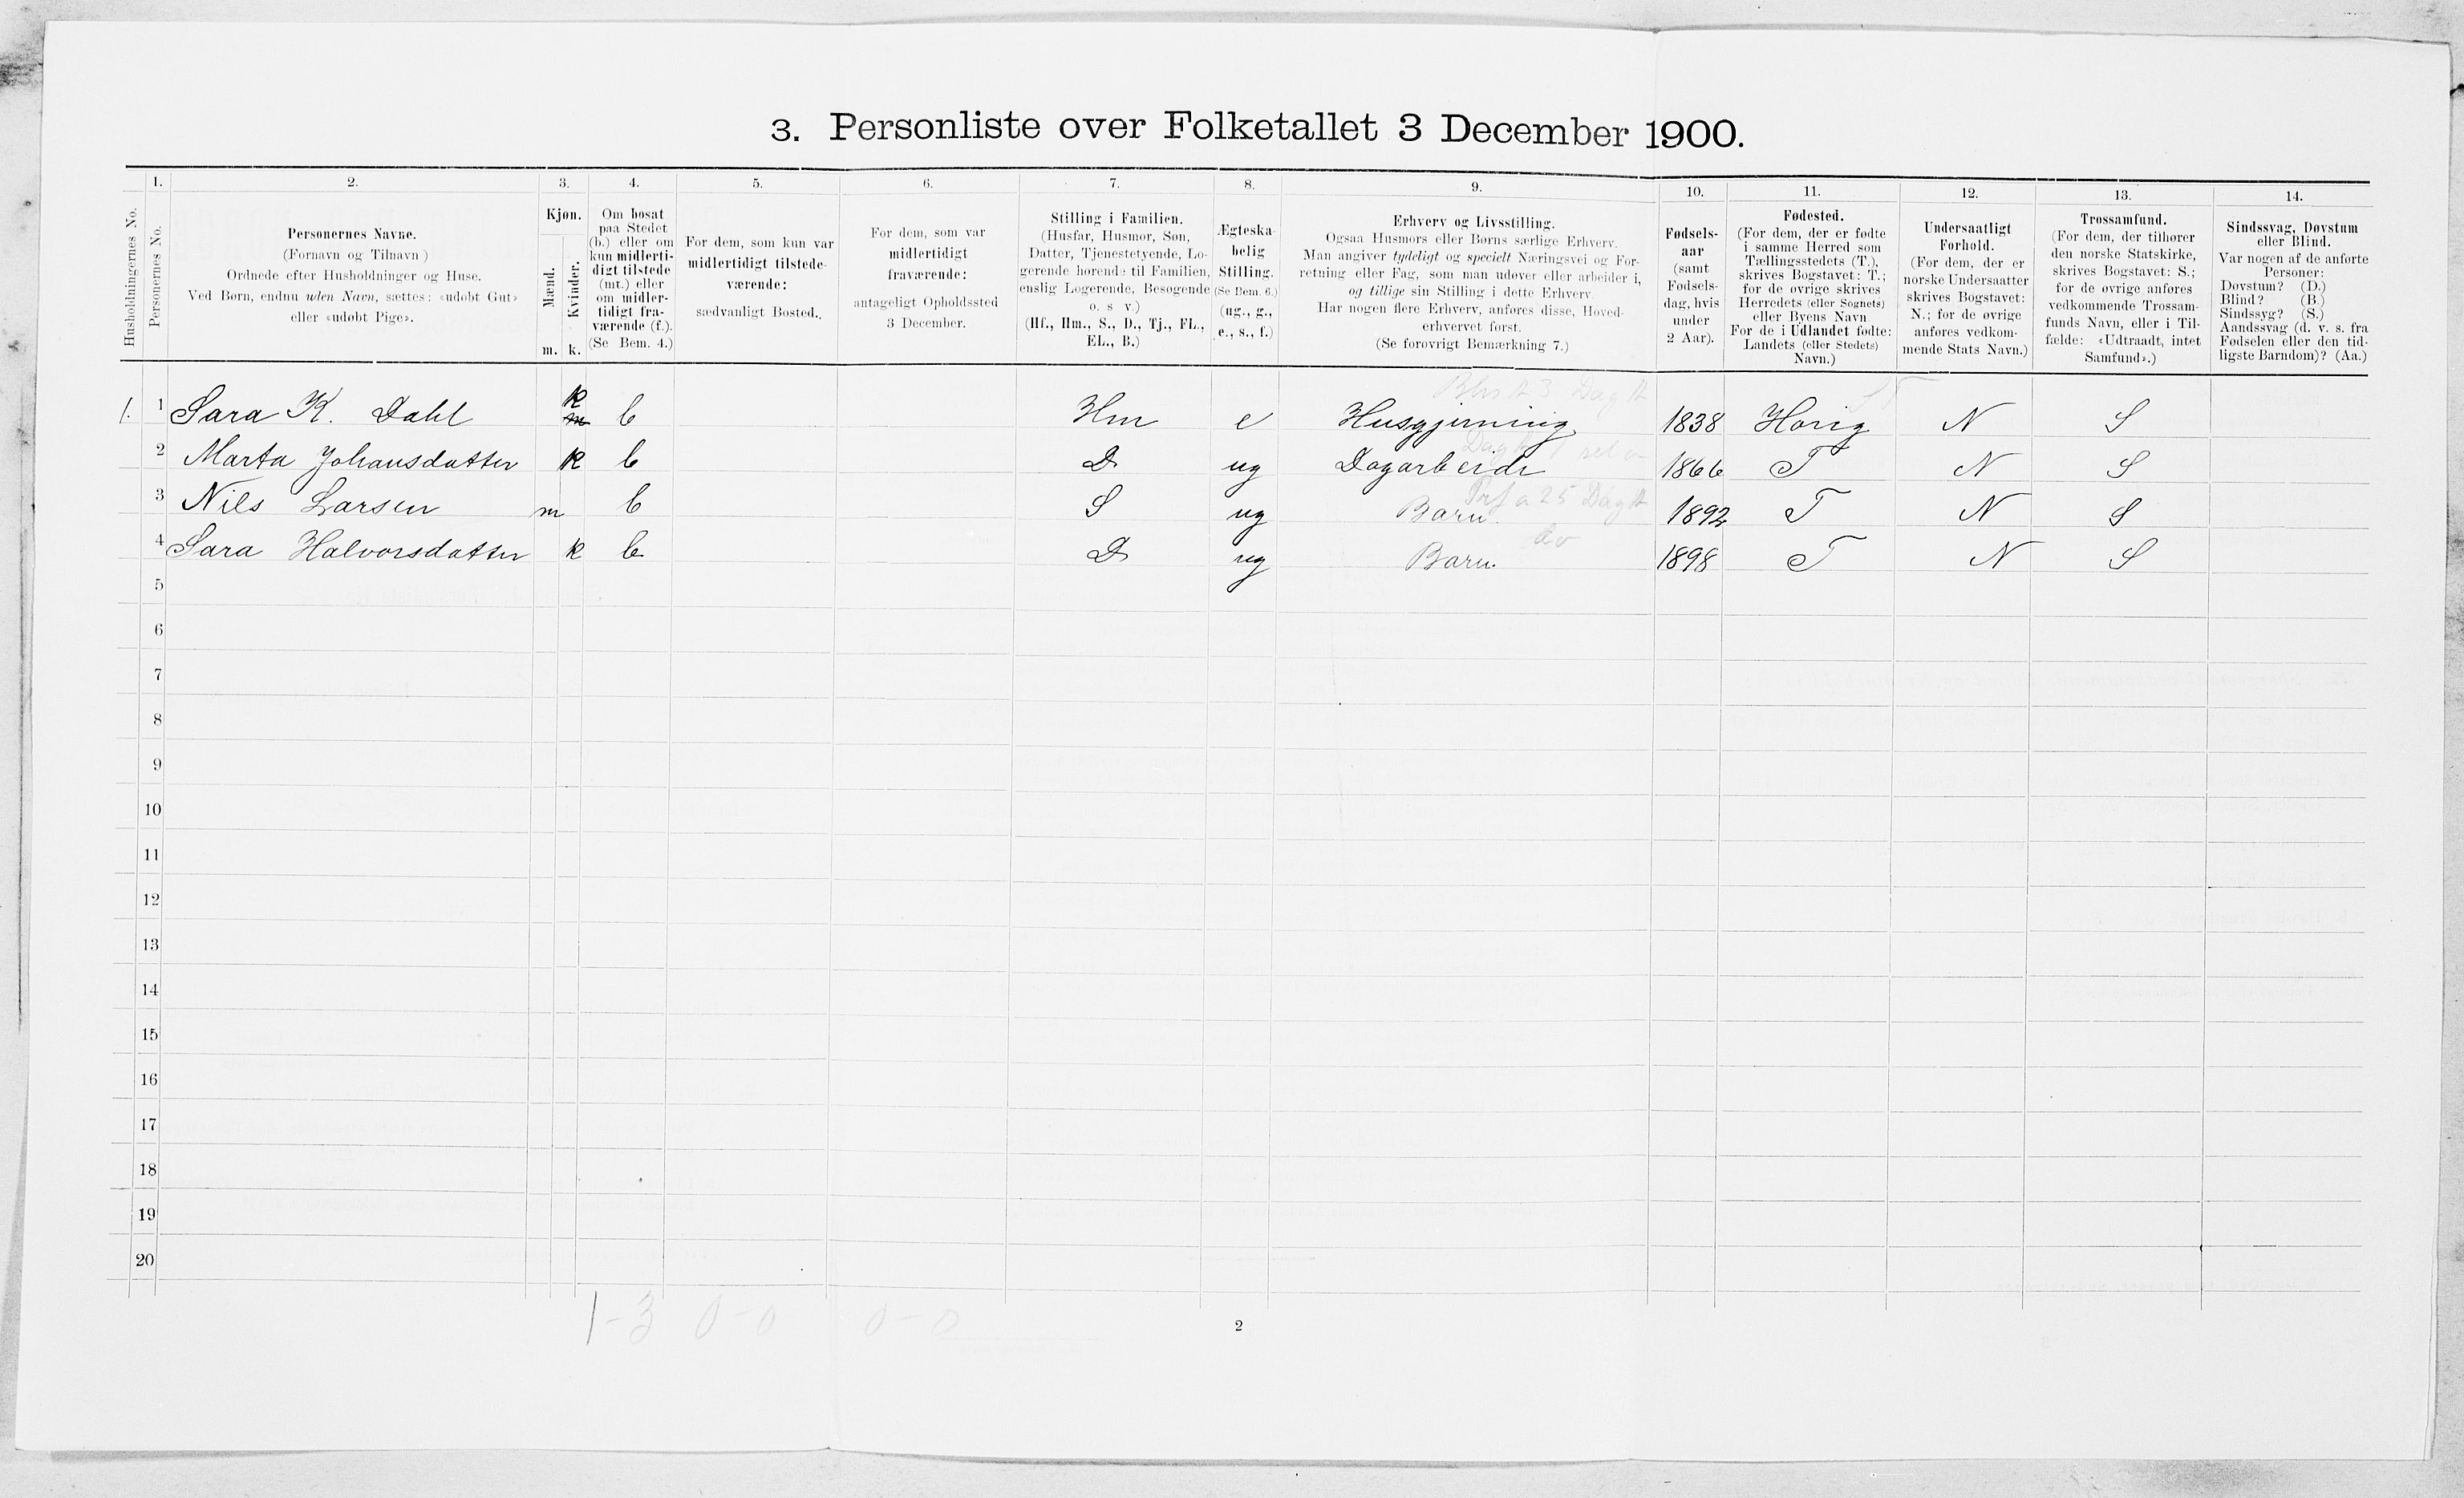 3. Personliste over Folketallet 3 December 1900.
1. 2. 3. 4. 5. 6. 7. 8. 9. 10. 11. 12. 13. 14.
Husholdningernes No.
Personernes No.
Personernes Navne.
(Fornavn og Tilnavn )
Ordnede efter Husholdninger og Huse.
Ved Børn, endnu uden Navn, sættes: «udøbt Gut»
eller «udøbt Pige».
Kjøn.
Mænd.
Kvinder.
m. k.
Om bosat
paa Stedet
(b.) eller om
kun midlerti-
digt tilstede
(mt.) eller
om midler-
tidigt fra-
værende (f.).
(Se Bem. 4.)
For dem, som kun var
midlertidigt tilstede-
værende:
sædvanligt Bosted.
For dem, som var
midlertidigt
fraværende:
antageligt Opholdssted
3 December.
Stilling i Familien.
(Husfar, Husmor, Søn,
Datter, Tjenestetyende, Lo-
gerende hørende til Familien,
enslig Logerende, Besøgende
o. s v.)
(Hf., Hm., S., D., Tj., FL.,
EL., B.)
Ægteska-
belig
Stilling.
(Se Bem. 6.)
(ug., g.,
e., s., f.)
Erhverv og Livsstilling.
Ogsaa Husmors eller Børns særlige Erhverv.
Man angiver tydeligt og specielt Næringsvei og For-
retning eller Fag, som man udøver eller arbeider i,
og tillige sin Stilling i dette Erhverv.
Har nogen flere Erhverv, anføres disse, Hoved-
erhvervet først.
(Se forøvrigt Bemærkning 7.)
Fødsels-
aar
(samt
Fødsels-
dag, hvis
under
2 Aar).
Fødested.
(For dem, der er fødte
i samme Herred som
Tællingsstedets (T.),
skrives Bogstavet: T.;
for de øvrige skrives
Herredets (eller Sognets)
eller Byens Navn
For de i Udlandet fødte:
Landets (eller Stedets)
Navn.)
Undersaatligt
Forhold.
(For dem, der er
norske Undersaatter
skrives Bogstavet:
N.; for de øvrige
anføres vedkom-
mende Stats Navn.)
Trossamfund.
(For dem, der tilhører
den norske Statskirke,
skrives Bogstavet: S.;
for de øvrige anføres
vedkommende Trossam-
funds Navn, eller i Til-
fælde: «Udtraadt, intet
Samfund».)
Sindssvag, Døvstum
eller Blind.
Var nogen af de anførte
Personer:
Døvstum? (D.)
Blind? (B.)
Sindssyg? (S.)
Aandssvag (d. v. s. fra
Fødselen eller den tid-
ligste Barndom)? (Aa.)
1. 1 Sara K. Dahl k m b Hm e Husgjerning 1838 Hørig N S
2 Marta Johansdatter k b D ug Dagarbeide 1866 T N S
3 Nils Larsen m b S ug Barn. 1892 T N S
4 Sara Halvorsdatter k b D ug Barn. 1898 T N S
5
6
7
8
9
10
11
12
13
14
15
16
17
18
19
20
1-3 0-0 0-0
2